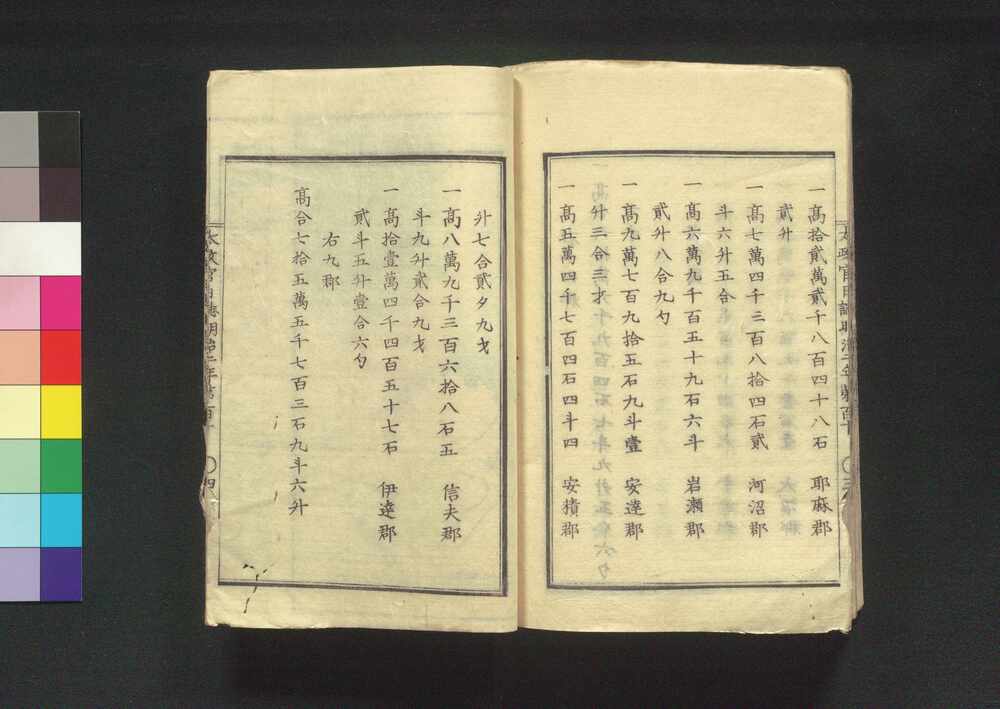 一高拾貳萬貳千八百四十八石　耶麻郡
貳升
一高七萬四千三百八拾四石貳　河沼郡
斗六升五合
一高六萬九千百五十九石六斗　岩瀬郡
貳升八合九勺
一高九萬七百九拾五石九斗壹　安達郡
升三合三才
一高五萬四千七百四石四斗四　安積郡
升七合貳夕九才
一高八萬九千三百六拾八石五　信夫郡
斗九升貳合九才
一高拾壹萬四千四百五十七石　伊達郡
貳斗五升壹合六勺
右九郡
高合七拾五萬五千七百三石九斗六升
太政官日誌明治二年第百十
四